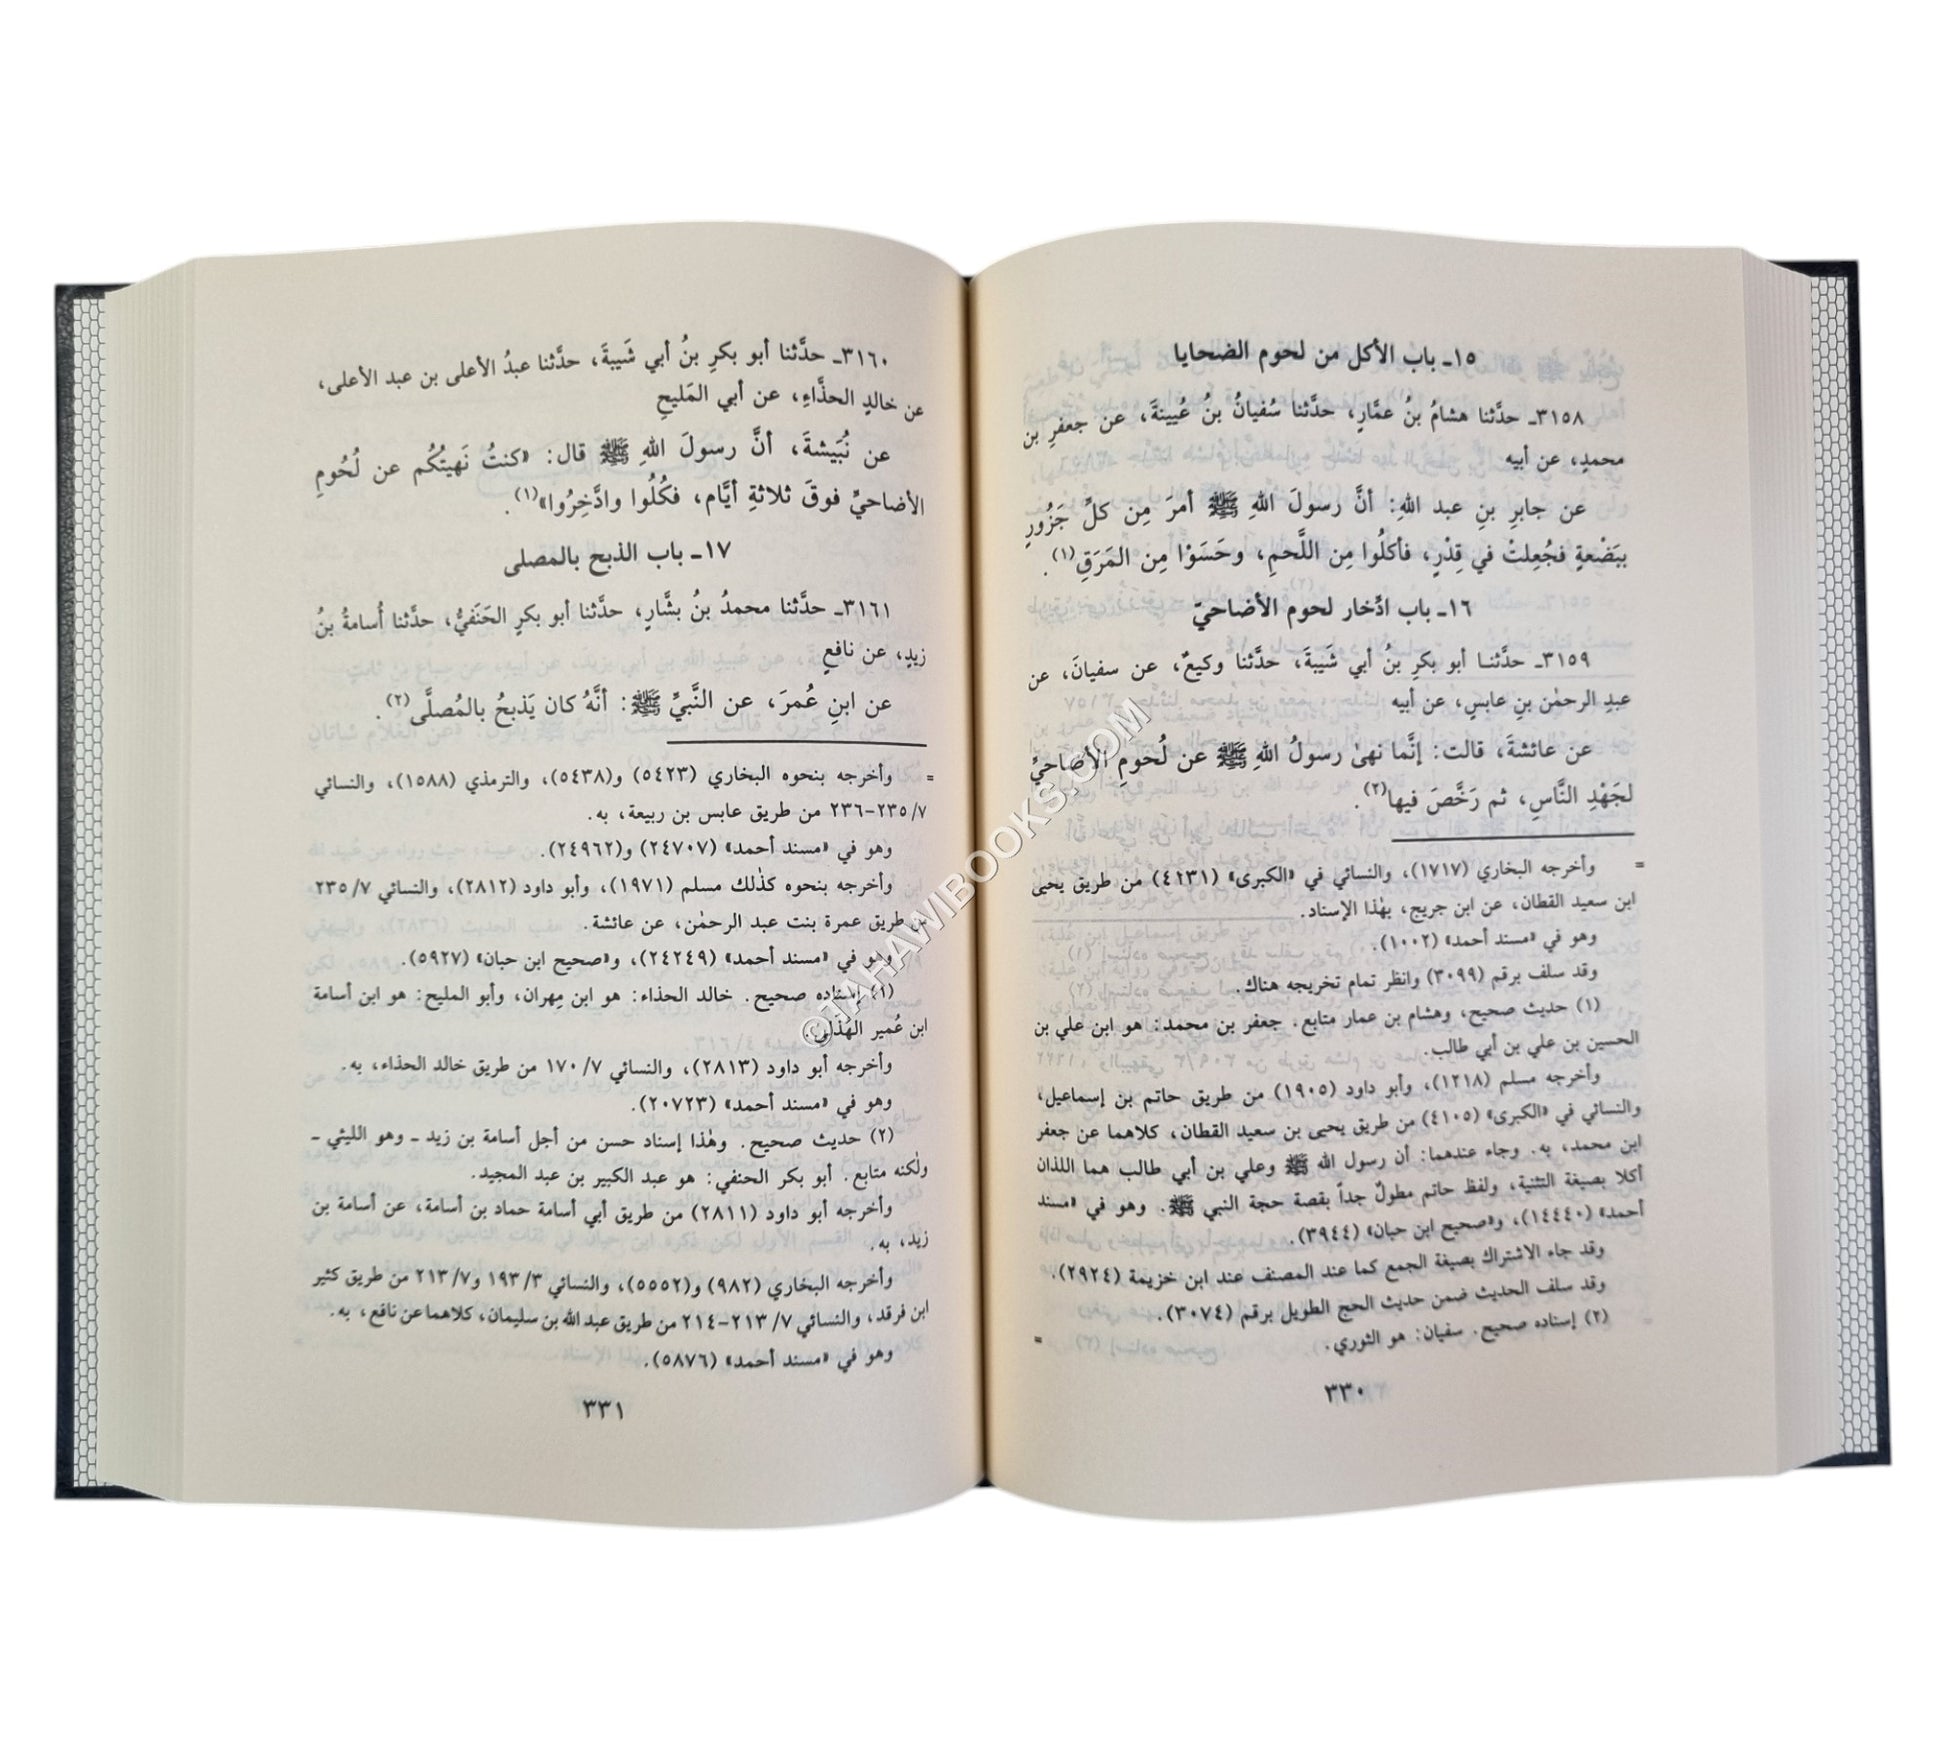 ١٥ـ باب الأكل من لحوم الضحايا
٣١٥٨ـ حدَّثنا هشامُ بنُ عمَّارٍ، حدَّثنا سُفيانُ بنُ عُيينةَ، عن جعفرِ بن
محمدٍ، عن أبيه
عن جابرِ بنِ عبد اللهِ: أنَّ رسولَ اللهِ ﷺ أمرَ مِن كلِّ جَزُورٍ
ببَضْعةٍ فجُعِلتْ في قِدْرٍ، فأكلُوا مِن اللَّحمِ، وحَسَوْا مِن المَرَقِ(١).
١٦ـ باب ادِّخار لحوم الأضاحيّ
٣١٥٩ـ حدَّثنا أبو بكرِ بنُ أبي شَيبةَ، حدَّثنا وكيعٌ، عن سفيانَ، عن
عبدِ الرحمٰن بنِ عابسٍ، عن أبيه
عن عائشةَ، قالت: إنَّما نهىٰ رسولُ اللهِ ﷺ عن لُحومِ الأضاحيِّ
لجَهْدِ النَّاسِ، ثم رَخَّصَ فيها(٢).
= وأخرجه البخاري (١٧١٧)، والنسائي في «الكبرى» (٤٢٣١) من طريق يحيى
ابن سعيد القطان، عن ابن جريج، بهٰذا الإسناد.
وهو في «مسند أحمد» (١٠٠٢).
وقد سلف برقم (٣٠٩٩) وانظر تمام تخريجه هناك.
(١) حديث صحيح، وهشام بن عمار متابع. جعفر بن محمد: هو ابن علي بن
الحسين بن علي بن أبي طالب.
وأخرجه مسلم (١٢١٨)، وأبو داود (١٩٠٥) من طريق حاتم بن إسماعيل،
والنسائي في «الكبرى» (٤١٠٥) من طريق يحيى بن سعيد القطان، كلاهما عن جعفر
ابن محمد، به. وجاء عندهما: أن رسول الله ﷺ وعلي بن أبي طالب هما اللذان
أكلا بصيغة التثنية، ولفظ حاتم مطولٌ جداً بقصة حجة النبي ﷺ. وهو في «مسند
أحمد» (١٤٤٤٠)، و«صحيح ابن حبان» (٣٩٤٤).
وقد جاء الاشتراك بصيغة الجمع كما عند المصنف عند ابن خزيمة (٢٩٢٤).
وقد سلف الحديث ضمن حديث الحج الطويل برقم (٣٠٧٤).
(٢) إسناده صحيح. سفيان: هو الثوري. =
٣٣٠
٣١٦٠ـ حدَّثنا أبو بكرِ بنُ أبي شَيبةَ، حدَّثنا عبدُ الأعلى بن عبد الأعلى،
عن خالدٍ الحذَّاءِ، عن أبي المَليحِ
عن نُبَيشةَ، أنَّ رسولَ اللهِ ﷺ قال: «كنتُ نَهيتُكُم عن لُحُومِ
الأضاحيِّ فوقَ ثلاثةِ أيَّام، فكُلُوا وادَّخِرُوا»(١).
١٧ـ باب الذبح بالمصلى
٣١٦١ـ حدَّثنا محمدُ بنُ بشَّارٍ، حدَّثنا أبو بكرٍ الحَنَفيُّ، حدَّثنا أُسامةُ بنُ
زيدٍ، عن نافعٍ
عن ابنِ عُمرَ، عن النَّبيِّ ﷺ: أنَّهُ كان يَذبحُ بالمُصلَّى(٢).
= وأخرجه بنحوه البخاري (٥٤٢٣) و(٥٤٣٨)، والترمذي (١٥٨٨)، والنسائي
٧/ ٢٣٥-٢٣٦ من طريق عابس بن ربيعة، به.
وهو في «مسند أحمد» (٢٤٧٠٧) و(٢٤٩٦٢).
وأخرجه بنحوه كذٰلك مسلم (١٩٧١)، وأبو داود (٢٨١٢)، والنسائي ٧/ ٢٣٥
من طريق عمرة بنت عبد الرحمٰن، عن عائشة.
وهو في «مسند أحمد» (٢٤٢٤٩)، و«صحيح ابن حبان» (٥٩٢٧).
(١) إسناده صحيح. خالد الحذاء: هو ابن مِهران، وأبو المليح: هو ابن أسامة
ابن عُمير الهُذلي.
وأخرجه أبو داود (٢٨١٣)، والنسائي ٧/ ١٧٠ من طريق خالد الحذاء، به.
وهو في «مسند أحمد» (٢٠٧٢٣).
(٢) حديث صحيح. وهٰذا إسناد حسن من أجل أسامة بن زيد ـ وهو الليثي ـ
ولٰكنه متابع. أبو بكر الحنفي: هو عبد الكبير بن عبد المجيد.
وأخرجه أبو داود (٢٨١١) من طريق أبي أسامة حماد بن أسامة، عن أسامة بن
زيد، به.
وأخرجه البخاري (٩٨٢) و(٥٥٥٢)، والنسائي ٣/ ١٩٣ و٧/ ٢١٣ من طريق كثير
ابن فرقد، والنسائي ٧/ ٢١٣-٢١٤ من طريق عبد الله بن سليمان، كلاهما عن نافع، به.
وهو في «مسند أحمد» (٥٨٧٦).
٣٣١
©TAHAWIBOOKS.COM